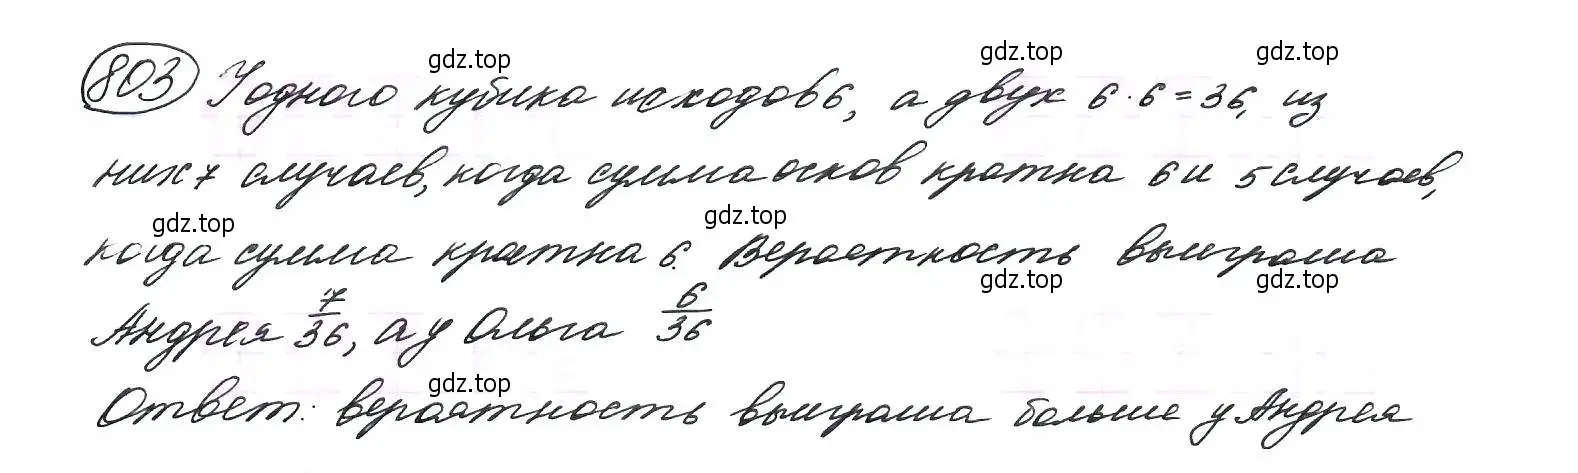 803 У одного кубика исходов 6, а двух 6 · 6 = 36, из
них 7 случаев, когда сумма очков кратна 6 и 5 случаев,
когда сумма кратна 6. Вероятность выиграша
Андрея 7/36, а у Ольга 6/36
Ответ: вероятность выиграша больше у Андрея
gdz.top
gdz.top
gdz.top
gdz.top
gdz.top
gdz.top
gdz.top
gdz.top